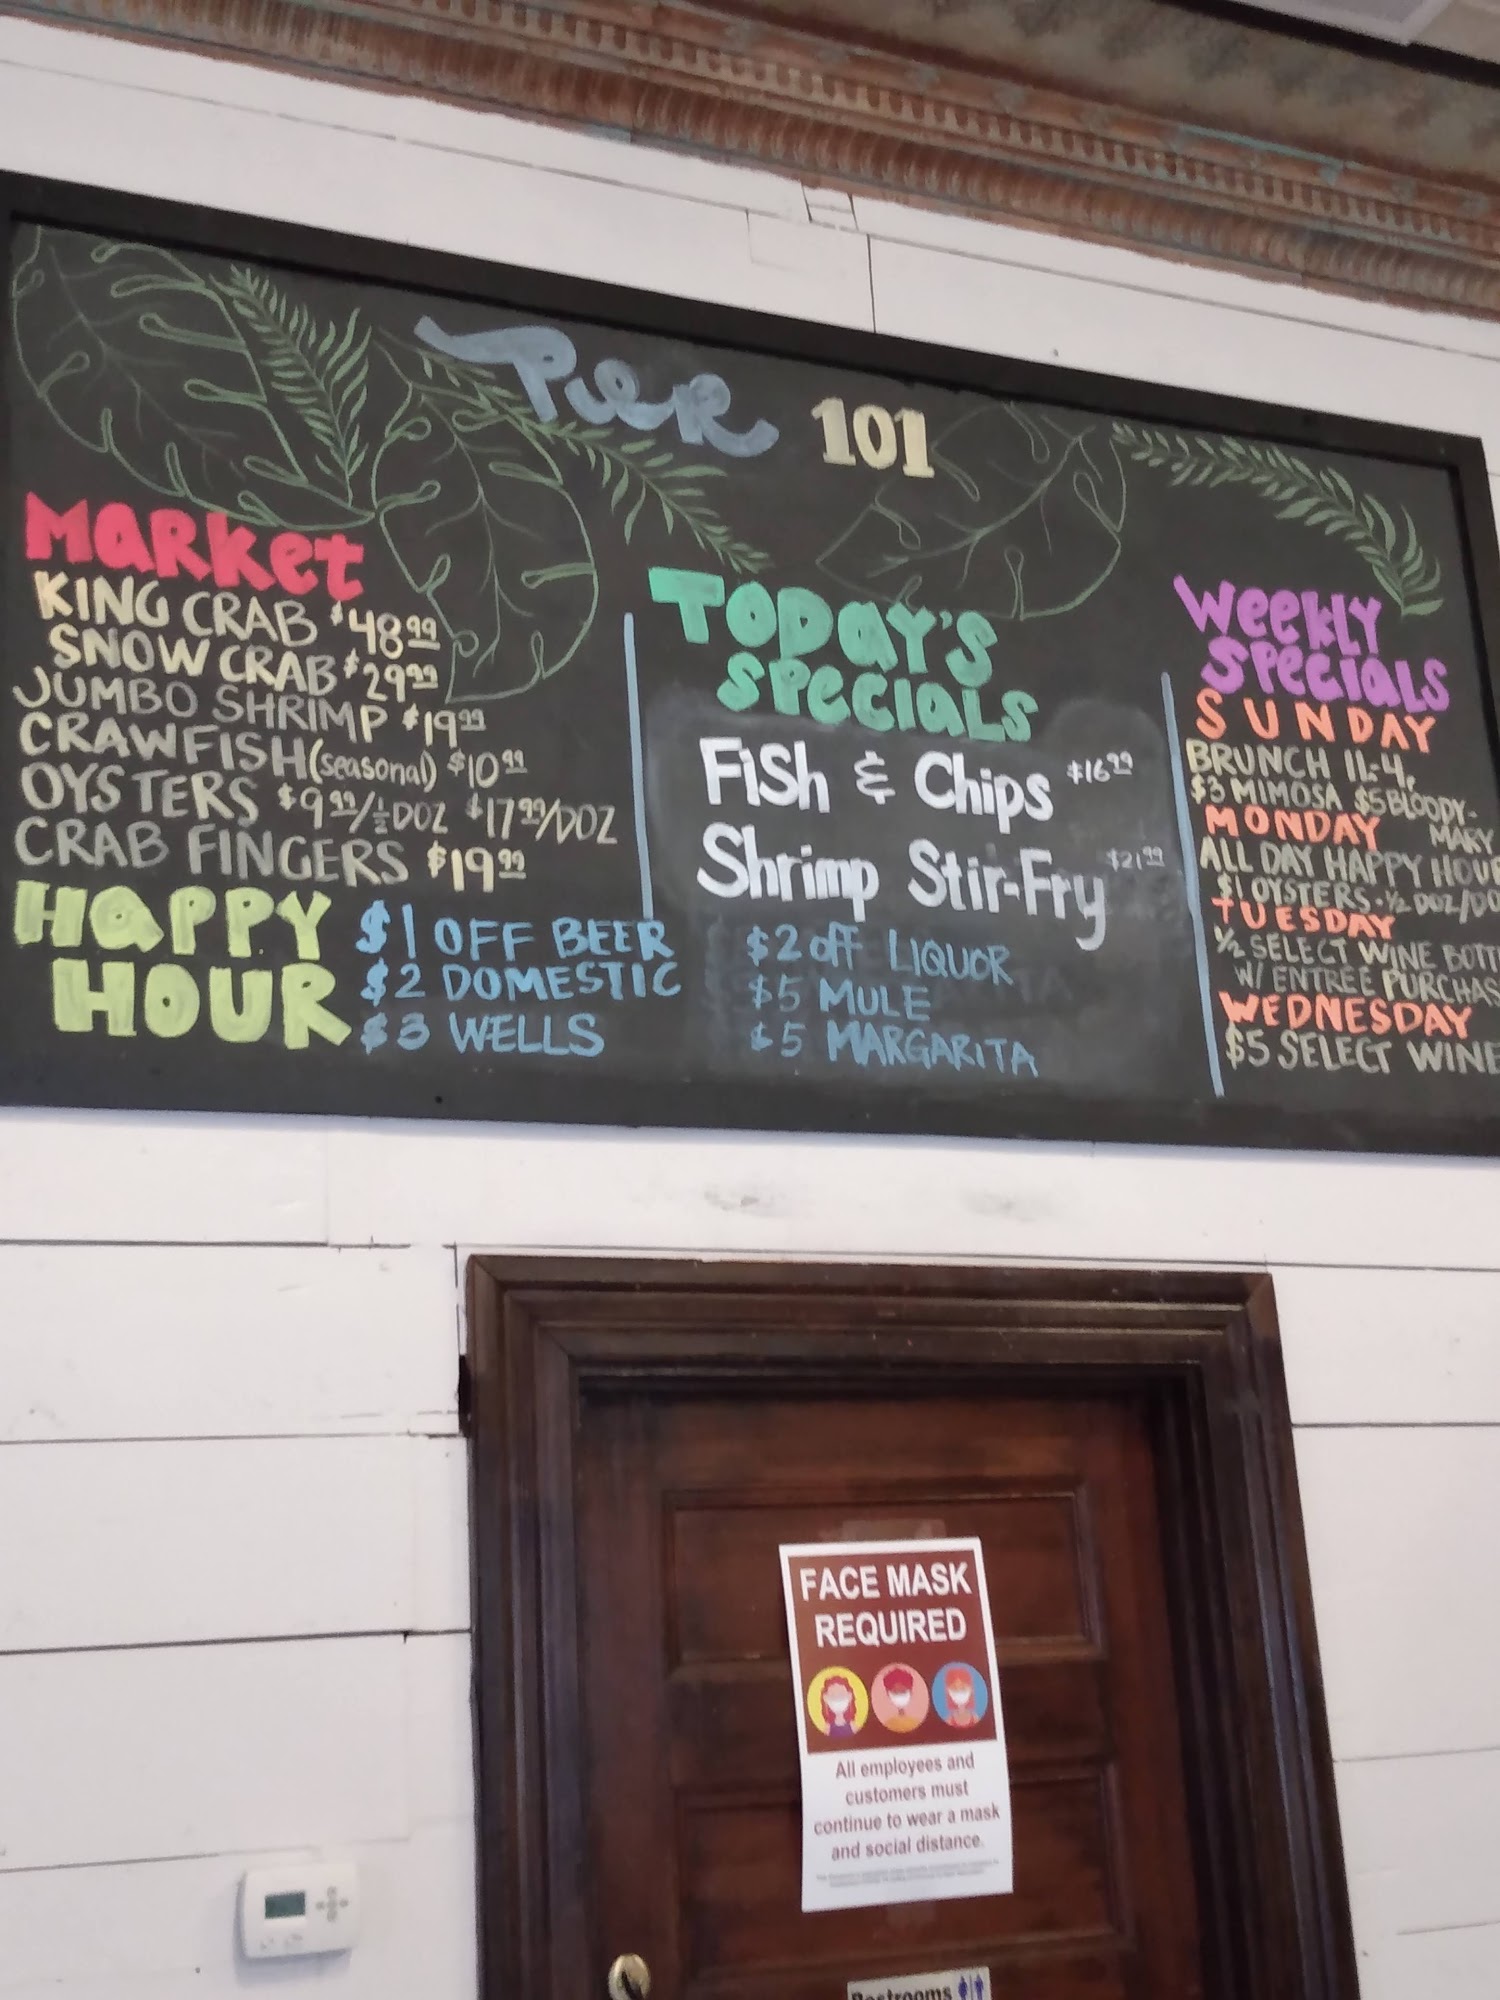 Pier 101
Market
KING CRAB $48.99
SNOW CRAB $29.99
JUMBO SHRIMP $19.99
CRAWFISH (seasonal) $10.99
OYSTERS $9.99/½DOZ $17.99/DOZ
CRAB FINGERS $19.99
HAPPY
HOUR
$1 OFF BEER
$2 DOMESTIC
$3 WELLS
TODAY'S
SPECIALS
Fish & Chips $16.99
Shrimp Stir-Fry $21.99
$2 off LIQUOR
$5 MULE
$5 MARGARITA
Weekly
Specials
SUNDAY
BRUNCH 11-4,
$3 MIMOSA $5 BLOODY-
MARY
MONDAY
ALL DAY HAPPY HOUR
$1 OYSTERS · ½ DOZ/DO
TUESDAY
½ SELECT WINE BOTT
W/ ENTREE PURCHAS
WEDNESDAY
$5 SELECT WINE
FACE MASK
REQUIRED
All employees and
customers must
continue to wear a mask
and social distance.
Restrooms